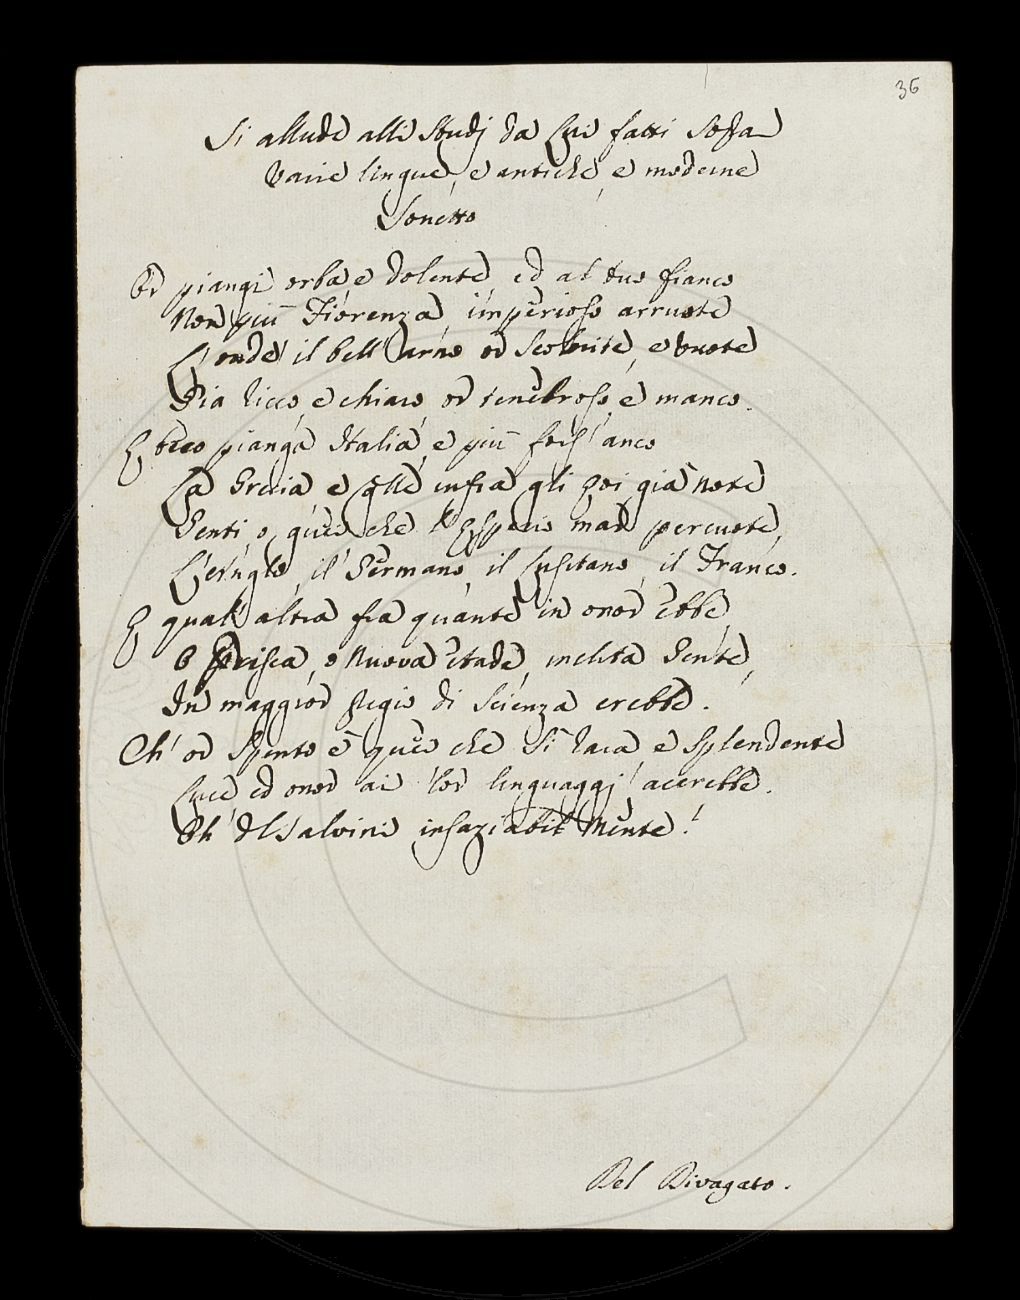 36
Si allude alli Studj da Lui fatti Sopra
varie lingue, e antiche, e moderne
Sonetto
Or piangi orba e dolente, ed al tuo fianco
Non più Fiorenza imperioso arruote
L'onde il bell'Arno or scolorite, e vuote
Pria ricco, e chiaro, or tenebroso, e manco.
E teco pianga Italia, e più fors'anco
La Grecia e qlle infra gli poi già note
Genti o, quei che l'Esperio mar percuote,
L'Anglo, il Germano, il Lusitano, il Franco.
E qual'altra fra quante in onor ebbe,
O prisca, o nuova etade, inclita Gente,
In maggior pregio di Scienza crebbe.
Ch'or spento è quei che Sì rara e splendente
Luce ed onor ai lor linguaggj accrebbe.
Oh' del Salvini insaziabil Mente!
Del Divagato.